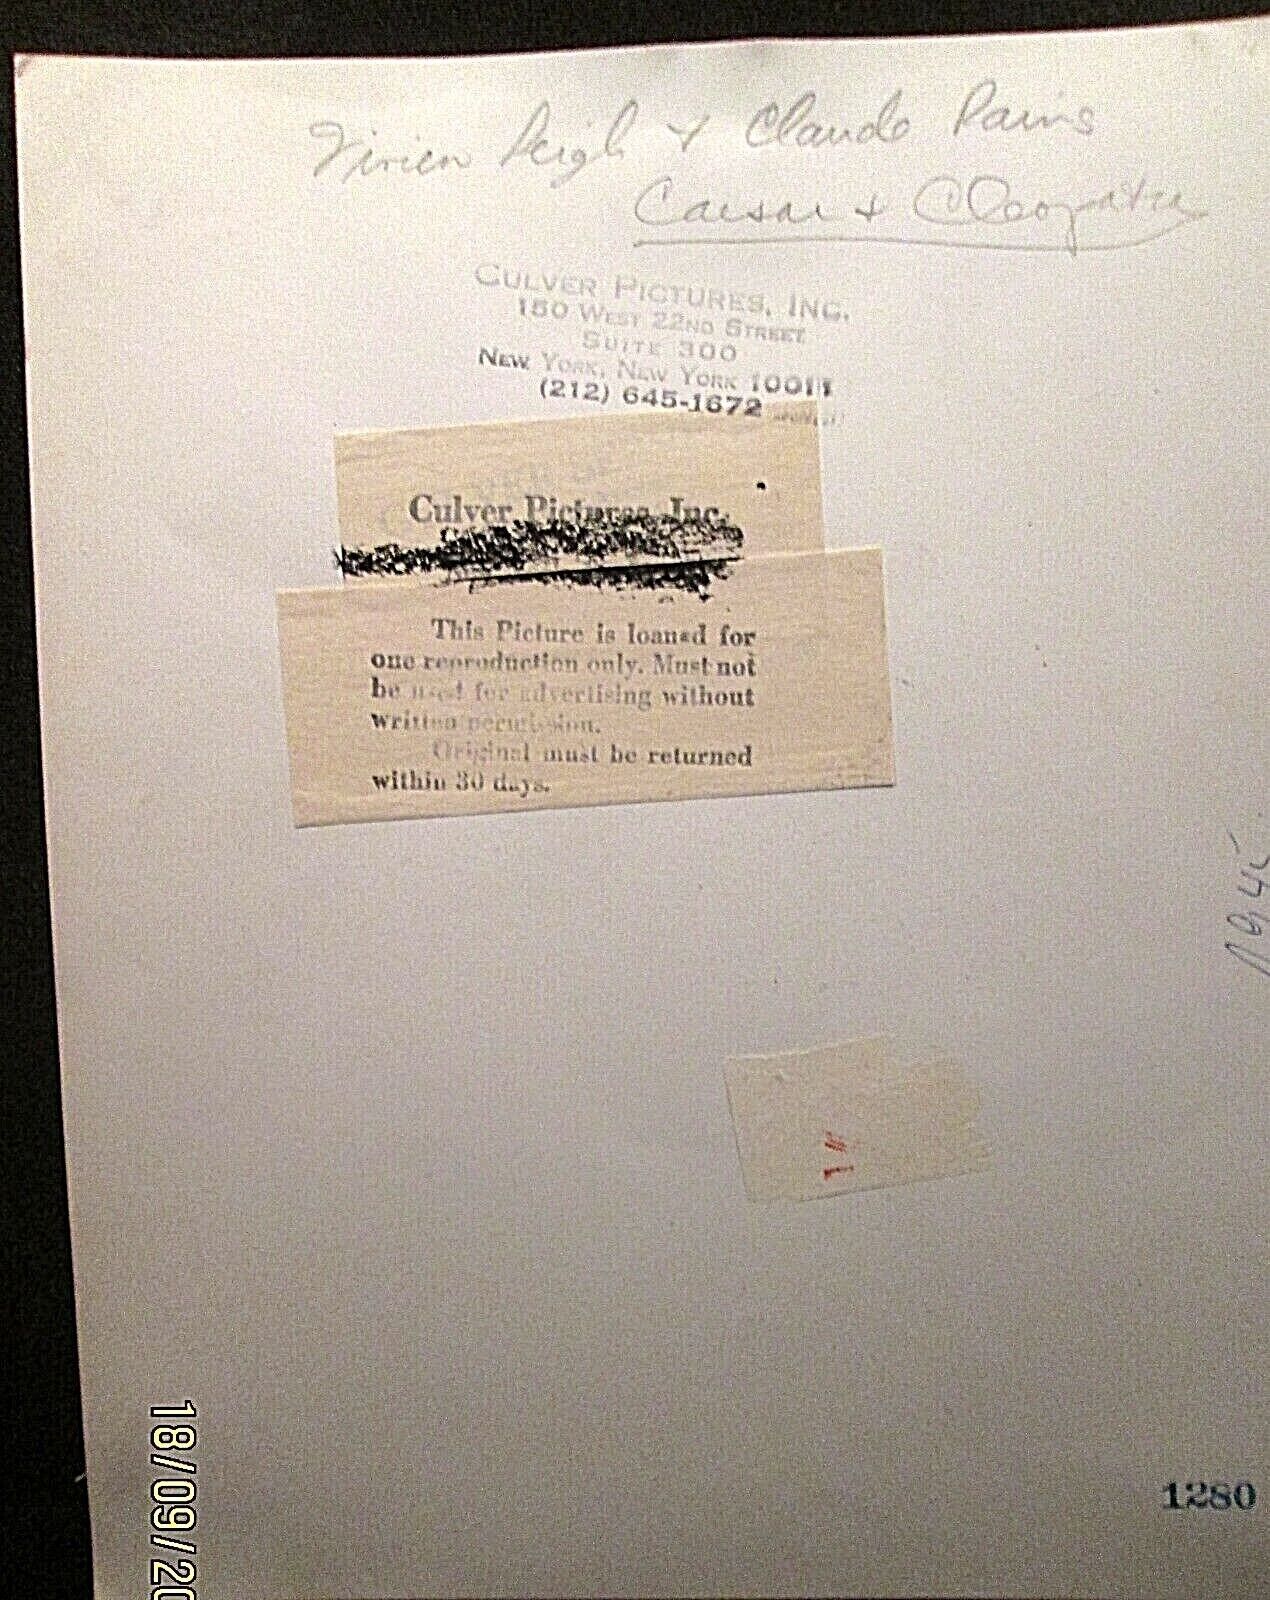 Vivien Leigh & Claude Rains
Caesar & Cleopatra
CULVER PICTURES, INC.
150 WEST 22ND STREET
SUITE 300
NEW YORK, NEW YORK 10011
(212) 645-1672
Culver Pictures, Inc.
This Picture is loaned for
one reproduction only. Must not
be used for advertising without
written permission.
Original must be returned
within 30 days.
1945
1280
18/09/20